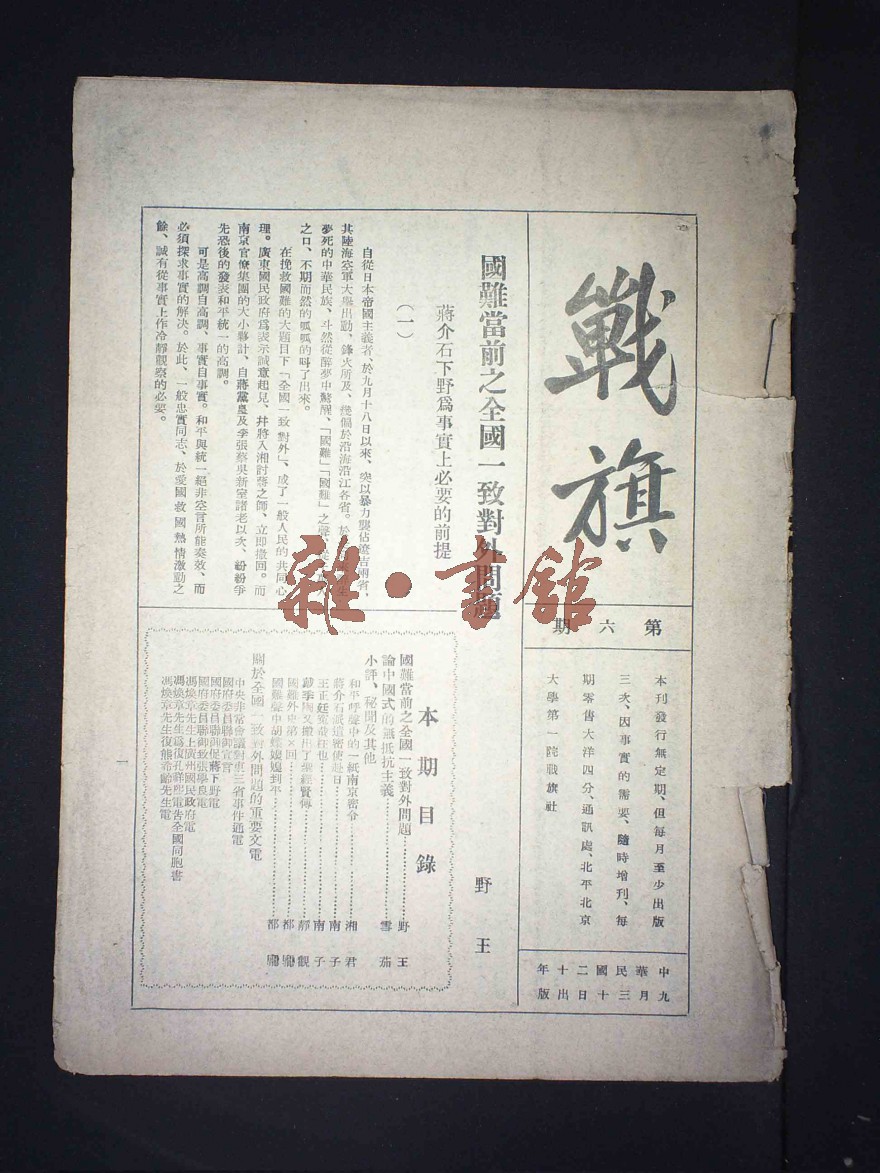 戰旗
第六期
本刊發行無定期、但每月至少出版
三次、因事實的需要、隨時增刊、每
期零售大洋四分、通訊處、北平北京
大學第一院戰旗社
中華民國二十年
九月三十日出版
國難當前之全國一致對外問題
蔣介石下野爲事實上必要的前提
野王
(一)
自從日本帝國主義者、於九月十八日以來、突以暴力襲佔遼吉兩省、
其陸海空軍大舉出動、鋒火所及、幾偏於沿海沿江各省。於
夢死的中華民族、斗然從醉夢中驚醒、「國難」「國難」之聲
之口、不期而然的呱呱的呌了出來。
在挽救國難的大題目下「全國一致對外」、成了一般人民的共同心
理。廣東國民政府爲表示誠意起見、幷將入湘討蔣之師、立卽撤回。而
南京官僚集團的大小夥計、自蔣黨皇及李張蔡吳新室諸老以次、紛紛爭
先恐後的發表和平統一的高調。
可是高調自高調、事實自事實。和平與統一絕非空言所能奏效、而
必須探求事實的解决。於此、一般忠實同志、於愛國救國熱情激勤之
餘、誠有從事實上作冷靜觀察的必要。
本期目錄
國難當前之全國一致對外問題……野王
論中國式的無抵抗主義……雪茄
小評、秘聞及其他
和平呼聲中的一紙南京密令……湘君
蔣介石派遣密使赴日……南子
王正廷寃哉枉也……南子
戴季陶又搬出了聖經賢傳……靜觀
國難外史第×回……都廳
國難聲中胡蝶孃孃到平……都廳
關於全國一致對外問題的重要文電
中央非常會議對東三省事件通電
國府委員聯御宣言
國府委員聯御促蔣下野電
國府委員聯御致張學良電
馮煥章先生上廣州國民政府電
馮煥章先生爲復孔祥熙電告全國同胞書
馮煥章先生復熊希齡先生電
一
雜·書館